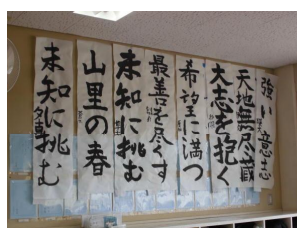 強い意志
天地無尽蔵
大志を抱く
希望に満つ
最善を尽くす
未知に挑む
山里の春
未知に挑む